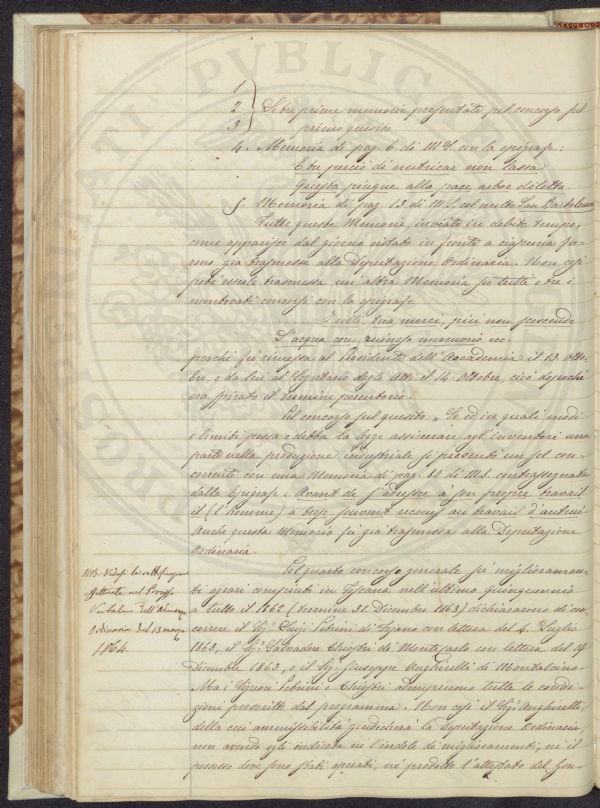 1
2 } Le tre prime memorie presentate pel concorso sul
3 primo quesito
4. Memoria di pag. 6. di MS. con la epigrafe:
E tu perciò di nutricar non lassa
Questa pingue alla pace arbor diletta.
5. Memoria di pag. 13 di MS. col motto San Bartolomeo
Tutte queste Memorie, inviate in debito tempo,
come apparisce dal giorno notato in fronte a ciascuna fu-
rono già trasmesse alla Deputazione Ordinaria. Non così
potè essere trasmessa un'altra Memoria su tutti e tre i
mentovati concorsi con la epigrafe
tua mercè, più non
L'acqua con ecc.
perchè fu rimessa al Presidente dell'Accademia il 13 Otto-
bre, e da lui al Segretario degli Atti il 14 Ottobre, cioè dopochè
era spirato il termine perentorio.
Sul concorso pel quesito „ Se ed in quali modi
e limiti possa e debba la legge assicurare agl'inventori una
parte nella produzione industriale si presentò un sol con-
corrente con una Memoria di pag. 32 di MS. contrassegnata
dalla Epigrafe: Avant de s'adresser à son propre travail
il (l'homme) a trop souvent recours au travail d'autrui.
Anche questa Memoria fu già trasmessa alla Deputazione
Ordinaria.
Sul quarto concorso generale su' miglioramen-
ti agrari compiuti in Toscana nell'ultimo quinquennio
a tutto il 1862 (termine 31 Dicembre 1863) dichiararono di con-
correre il Sig. Luigi Petrini di con lettera del 4. Luglio
1863, il Sig. Salvadore Chiostri de Montecarlo con lettera del 14
Dicembre 1863, e il Sig. Giuseppe Anghirelli di Montalcino.
Ma i Signori Petrini e Chiostri adempierono tutte le condi-
zioni prescritte dal programma. Non così il Sig. Anghirelli,
della cui ammissibilità giudicherà la Deputazione Ordinaria,
non avendo egli indicata nè l'indole di miglioramenti, nè il
possesso dove sono stati operati, nè prodotto l'attestato del Gon-
NB. Vedasi la rettificazione
effettuata nel Processo
Verbale dell'Adunanza
Ordinaria del 13 marzo
1864.